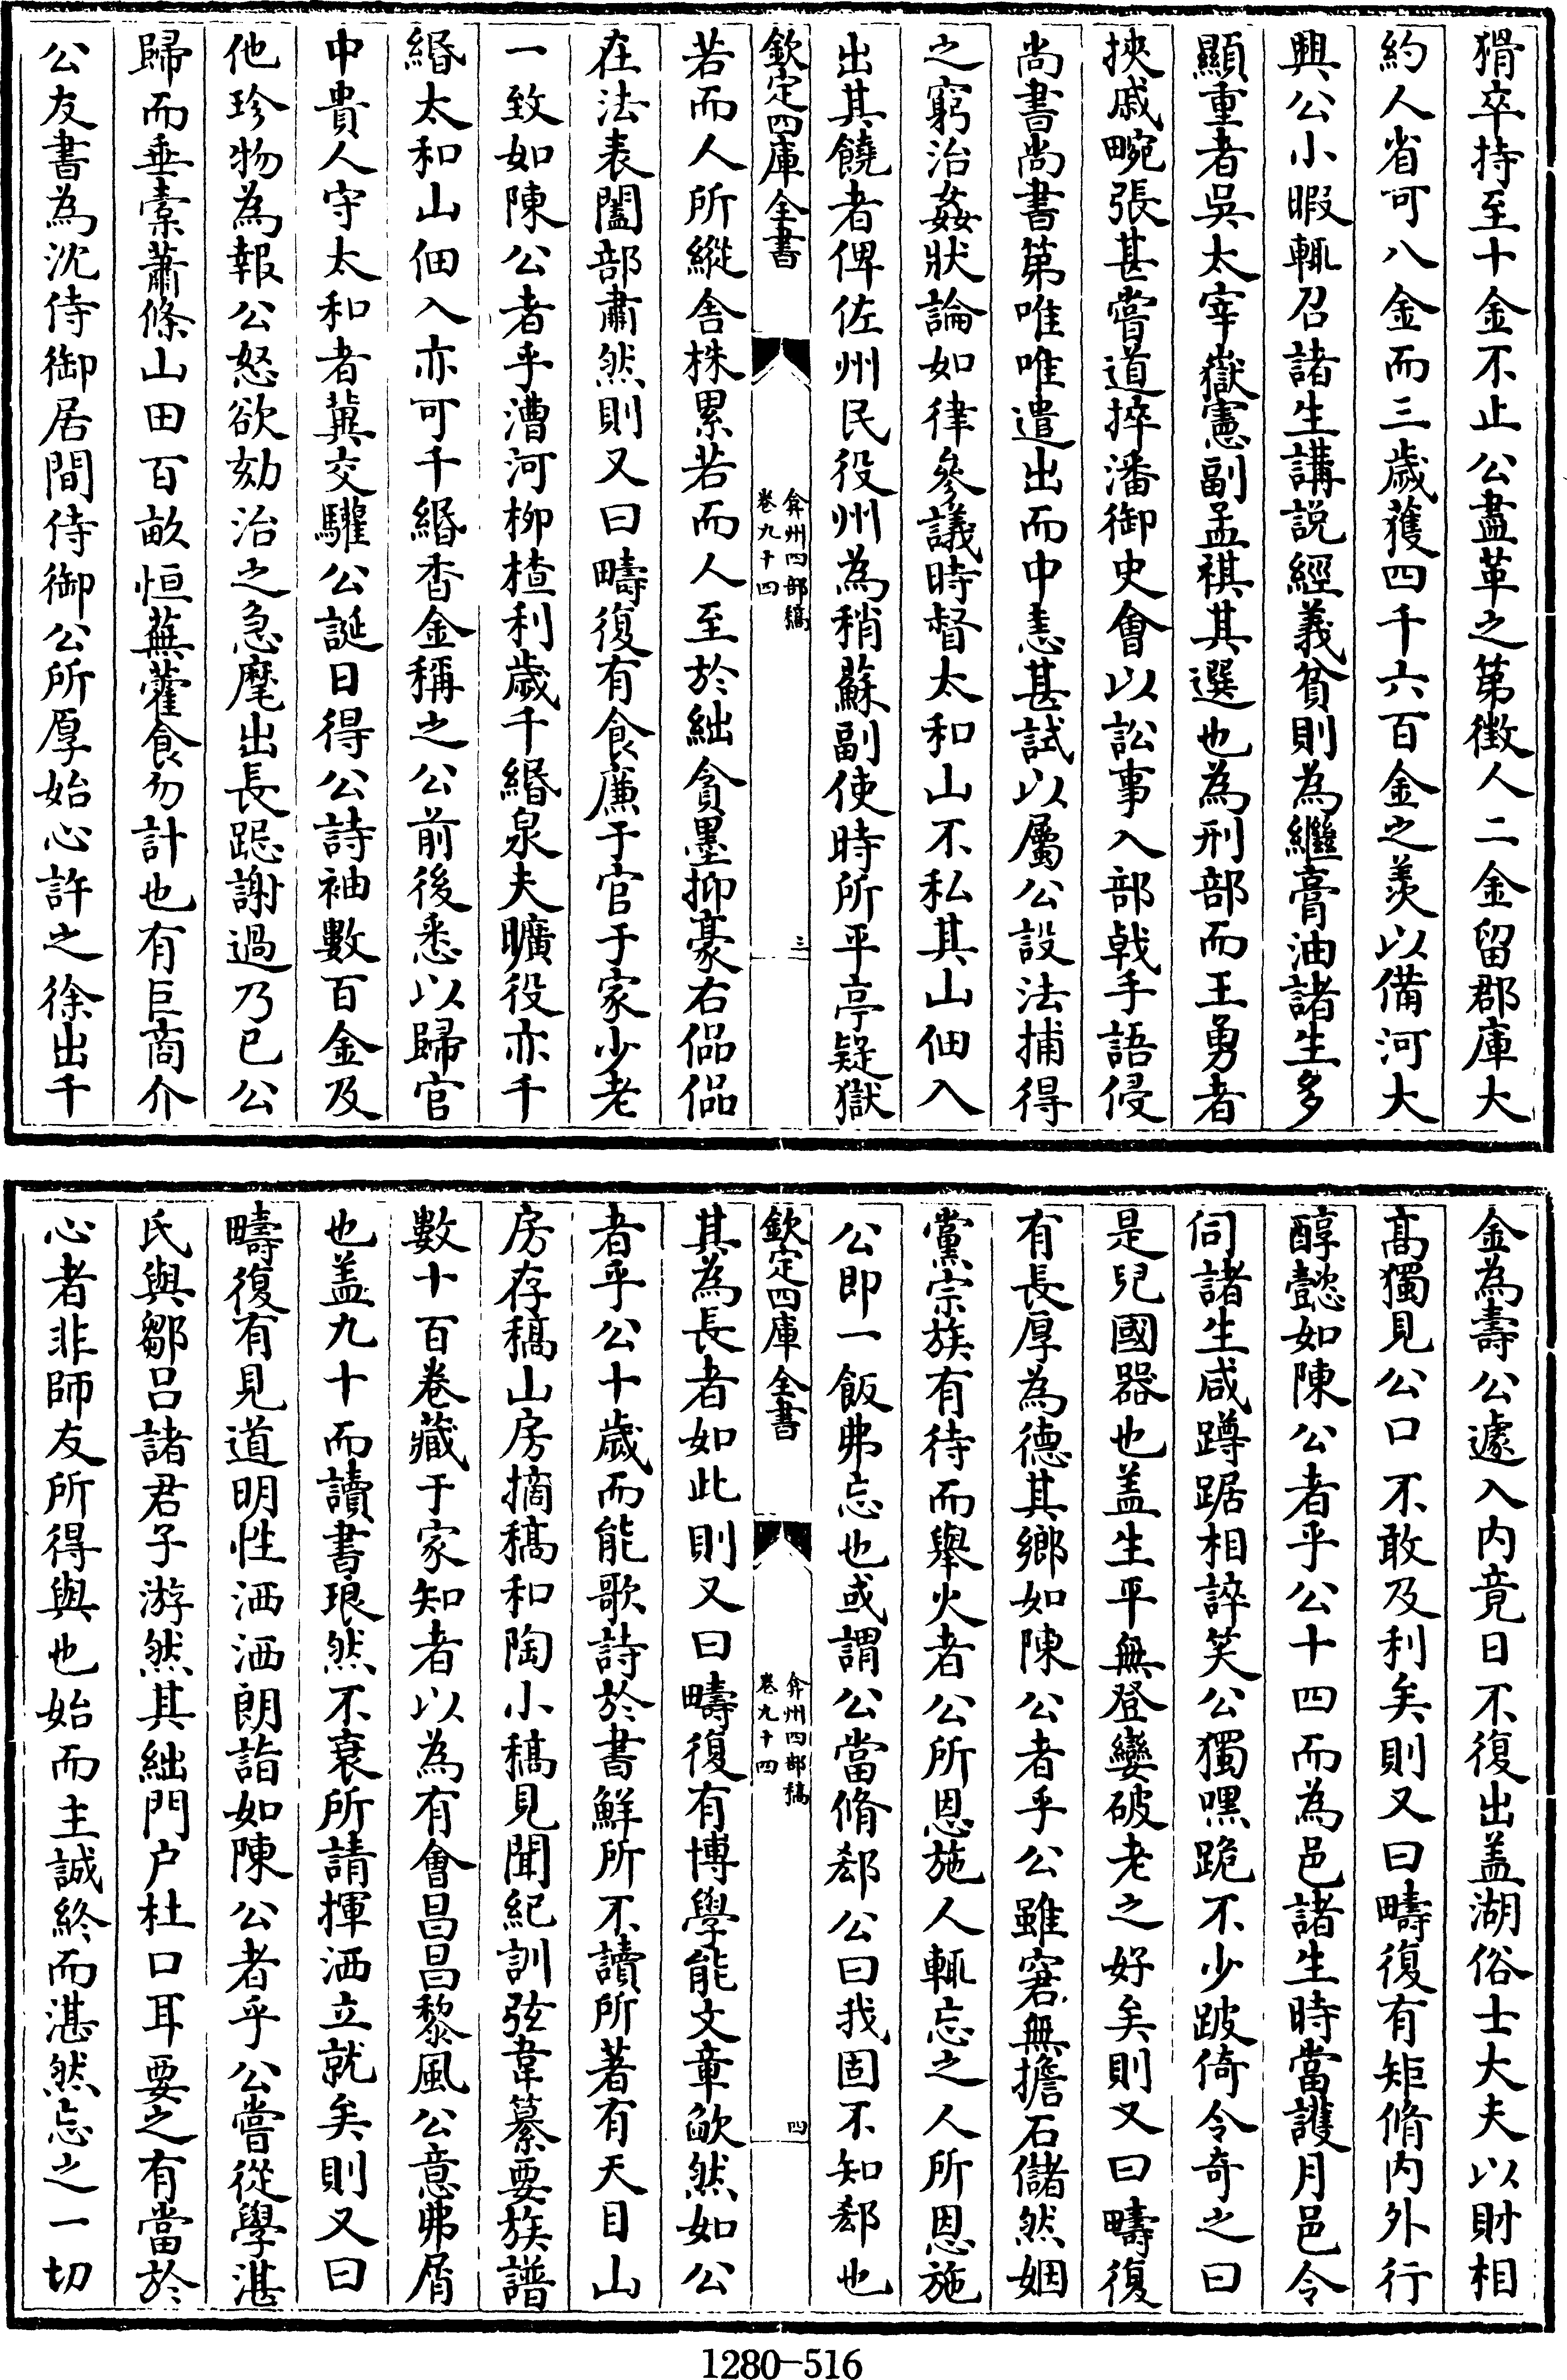 猾卒持至十金不止公盡革之第徴人二金留郡庫大
約人省可八金而三歳獲四千六百金之羡以備河大
興公小暇輒召諸生講説經義貧則為繼膏油諸生多
顯重者吳太宰嶽憲副孟祺其選也為刑部而王勇者
挾戚畹張甚嘗道捽潘御史會以訟事入部戟手語侵
尚書尚書第唯唯遣出而中恚甚試以屬公設法捕得
之窮治姦狀論如律參議時督太和山不私其山佃入
出其饒者俾佐州民役州為稍蘇副使時所平亭疑獄
欽定四庫全書
弇州四部稿
卷九十四
三
若而人所縱舍株累若而人至於絀貪墨抑豪右偘偘
在法表闔部肅然則又曰疇復有食廉于官于家少老
一致如陳公者乎漕河柳楂利歳千緡泉夫曠役亦千
緡太和山佃入亦可千緡香金稱之公前後悉以歸官
中貴人守太和者冀交驩公誕日得公詩袖數百金及
他珍物為報公怒欲劾治之急麾出長跽謝過乃已公
歸而垂橐蕭條山田百畝恒蕪藿食勿計也有巨商介
公友書為沈侍御居間侍御公所厚始心許之徐出千
金為壽公遽入内竟日不復出盖湖俗士大夫以財相
髙獨見公口不敢及利矣則又曰疇復有矩脩内外行
醇懿如陳公者乎公十四而為邑諸生時當頀月邑令
伺諸生咸蹲踞相誶笑公獨嘿跪不少跛倚令奇之曰
是兒國器也盖生平無登孌破老之好矣則又曰疇復
有長厚為德其鄉如陳公者乎公雖窘無擔石儲然姻
黨宗族有待而舉火者公所恩施人輒忘之人所恩施
公即一飯弗忘也或謂公當脩郄公曰我固不知郄也
欽定四庫全書
弇州四部稿
卷九十四
四
其為長者如此則又曰疇復有博學能文章歛然如公
者乎公十歳而能歌詩於書鮮所不讀所著有天目山
房存稿山房摘稿和陶小稿見聞紀訓弦韋纂要族譜
數十百卷藏于家知者以為有會昌昌黎風公意弗屑
也盖九十而讀書琅然不衰所請揮洒立就矣則又曰
疇復有見道明性洒洒朗詣如陳公者乎公嘗從學湛
氏與鄒吕諸君子游然其絀門户杜口耳要之有當於
心者非師友所得與也始而主誠終而湛然忘之一切
1280-516